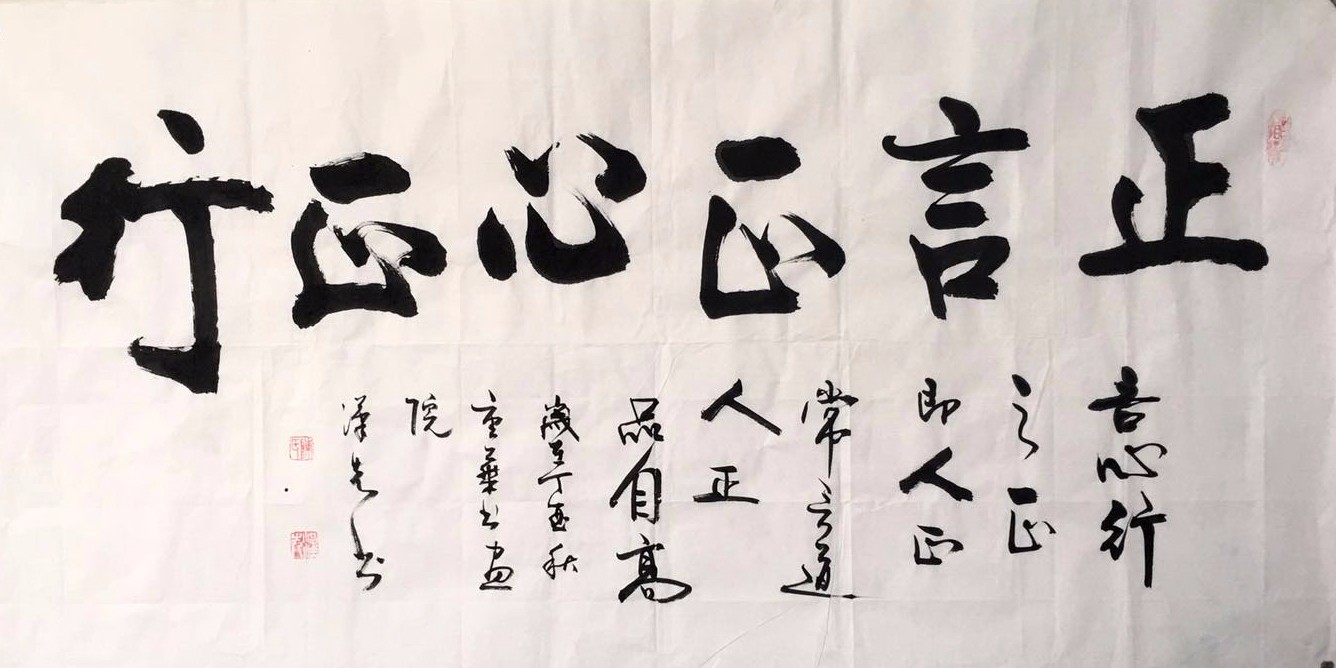 正言正心正行
言心行
之正
即人正
常言道
人正
品自高
歲在丁酉秋
重華書畫
院
漢先書